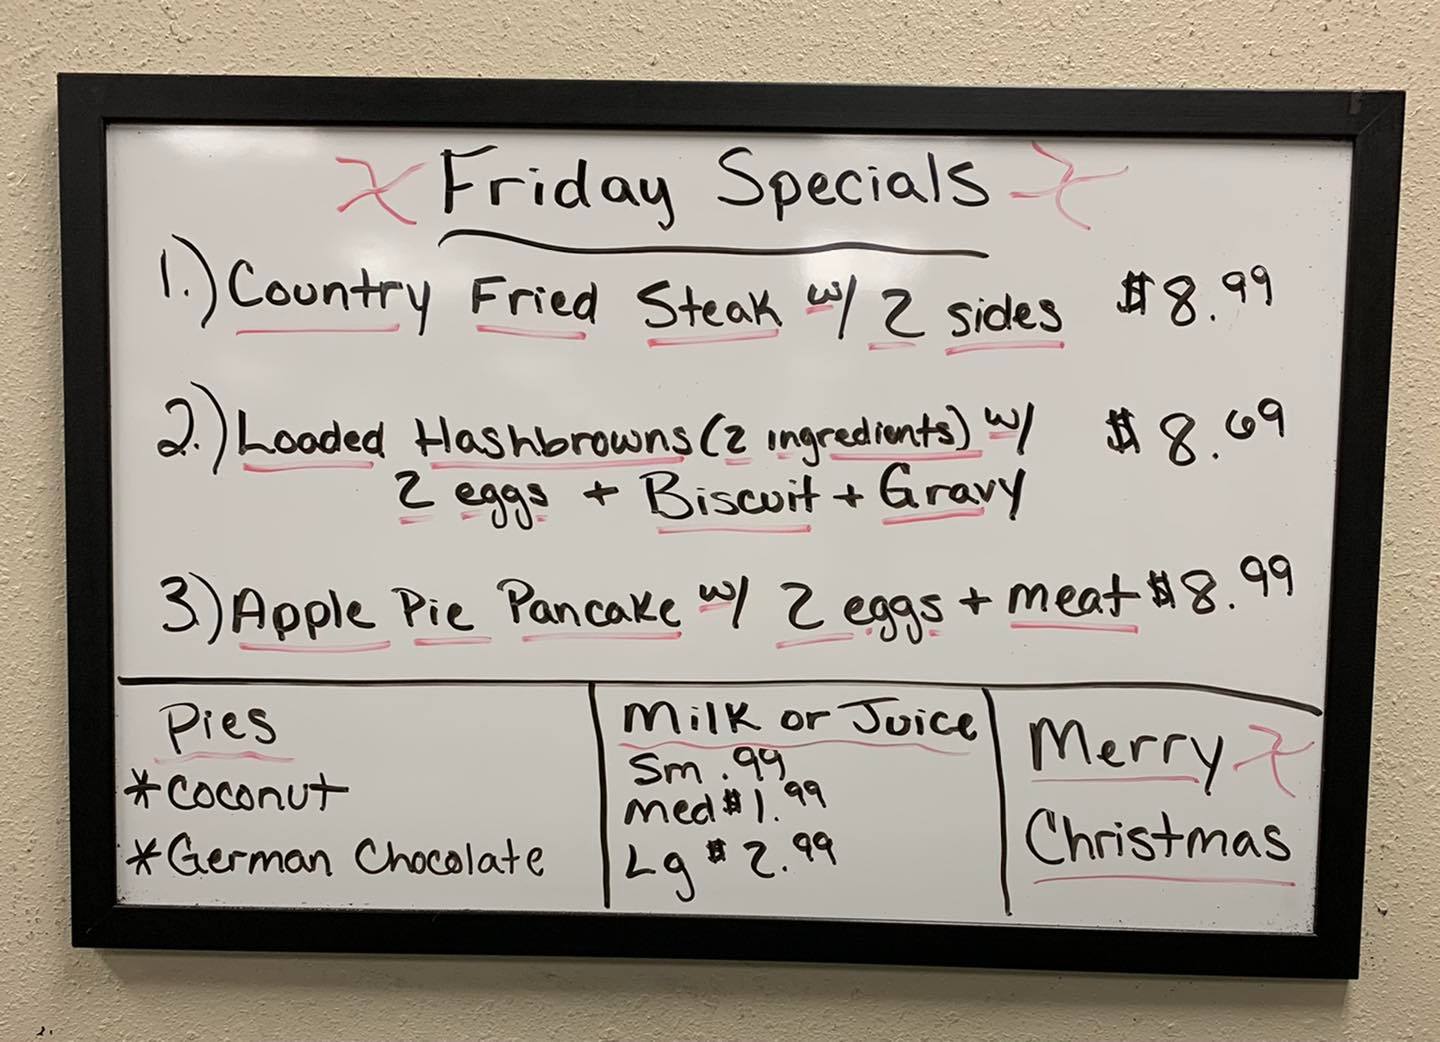 Friday Specials
1.) Country Fried Steak w/ 2 sides $8.99
2.) Loaded Hashbrowns (2 ingredients) w/ $8.69
2 eggs + Biscuit + Gravy
3.) Apple Pie Pancake w/ 2 eggs + meat $8.99
Pies
*Coconut
*German Chocolate
Milk or Juice
Sm .99
med $1.99
Lg $2.99
Merry
Christmas